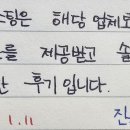 스팅은 해당 업체로
를 제공받고 솔
한 후기입니다.
1.11 진